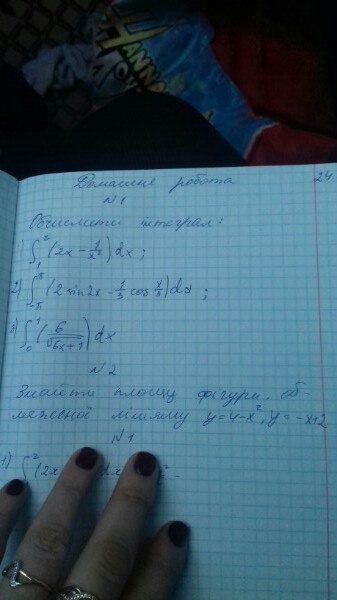 HANNAH
MO
Домашня робота
24
N1
Обчислити інтеграл:
1) ∫₁² (2x - 1/x²) dx ;
2) ∫₋π^π (2 sin 2x - 1/3 cos x/3) dx ;
3) ∫₀¹ (6/√(6x+1)) dx
N2
Знайти площу фігури, об-
меженої лініями y=4-x², y=-x+2
N1
1) ∫ ² (2x dx